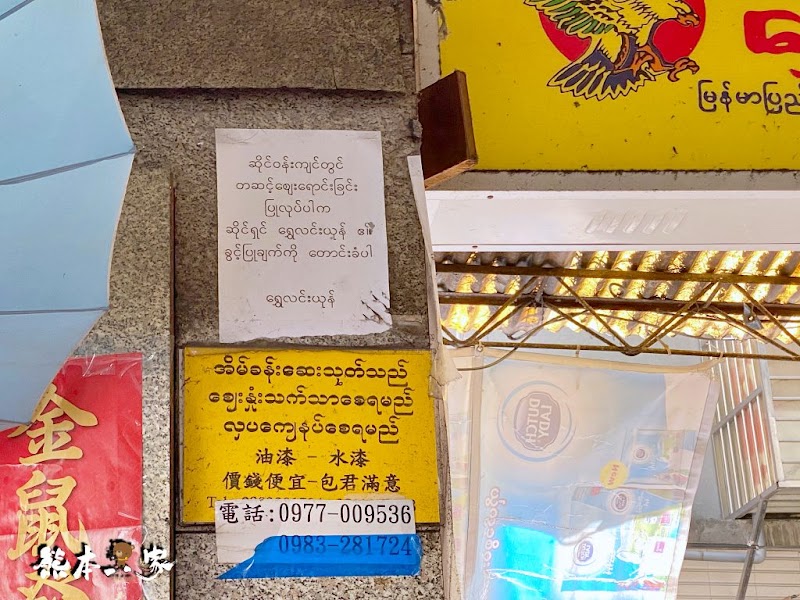 မြန်မာပြည်
ဆိုင်ဝန်းကျင်တွင်
တဆင့်ဈေးရောင်းခြင်း
ပြုလုပ်ပါက
ဆိုင်ရှင် ရွှေလင်းယူန် ၏
ခွင့်ပြုချက်ကို တောင်းခံပါ
ရွှေလင်းယုန်
အိမ်ခန်းဆေးသုတ်သည်
ဈေးနှုံးသက်သာစေရမည်
လှပကျေနပ်စေရမည်
油漆 - 水漆
價錢便宜-包君滿意
電話:0977-009536
0983-281724
金鼠
DUTCH
LADY
NEW
熊本一家